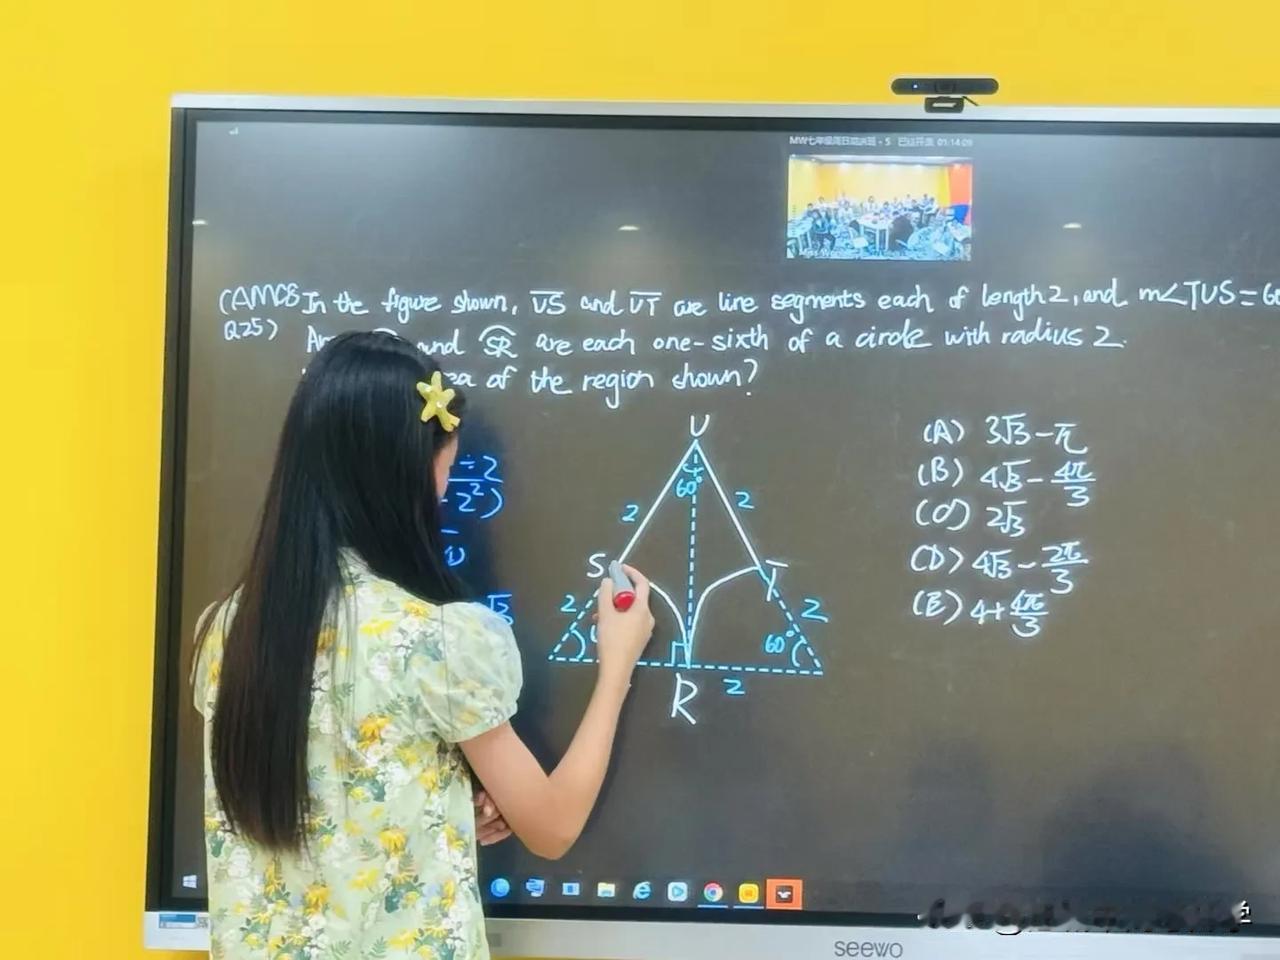 (AMC8 In the figure shown, US and UT are line segments each of length 2, and m∠TUS=60
Q25) and SR are each one-sixth of a circle with radius 2.
of the region shown?
U
÷2
2²)
60°
2
2
S
T
2
2
60°
R
2
(A) 3√3-π
(B) 4√3-4π/3
(C) 2√3
(D) 4√3-2π/3
(E) 4+4π/3
seewo